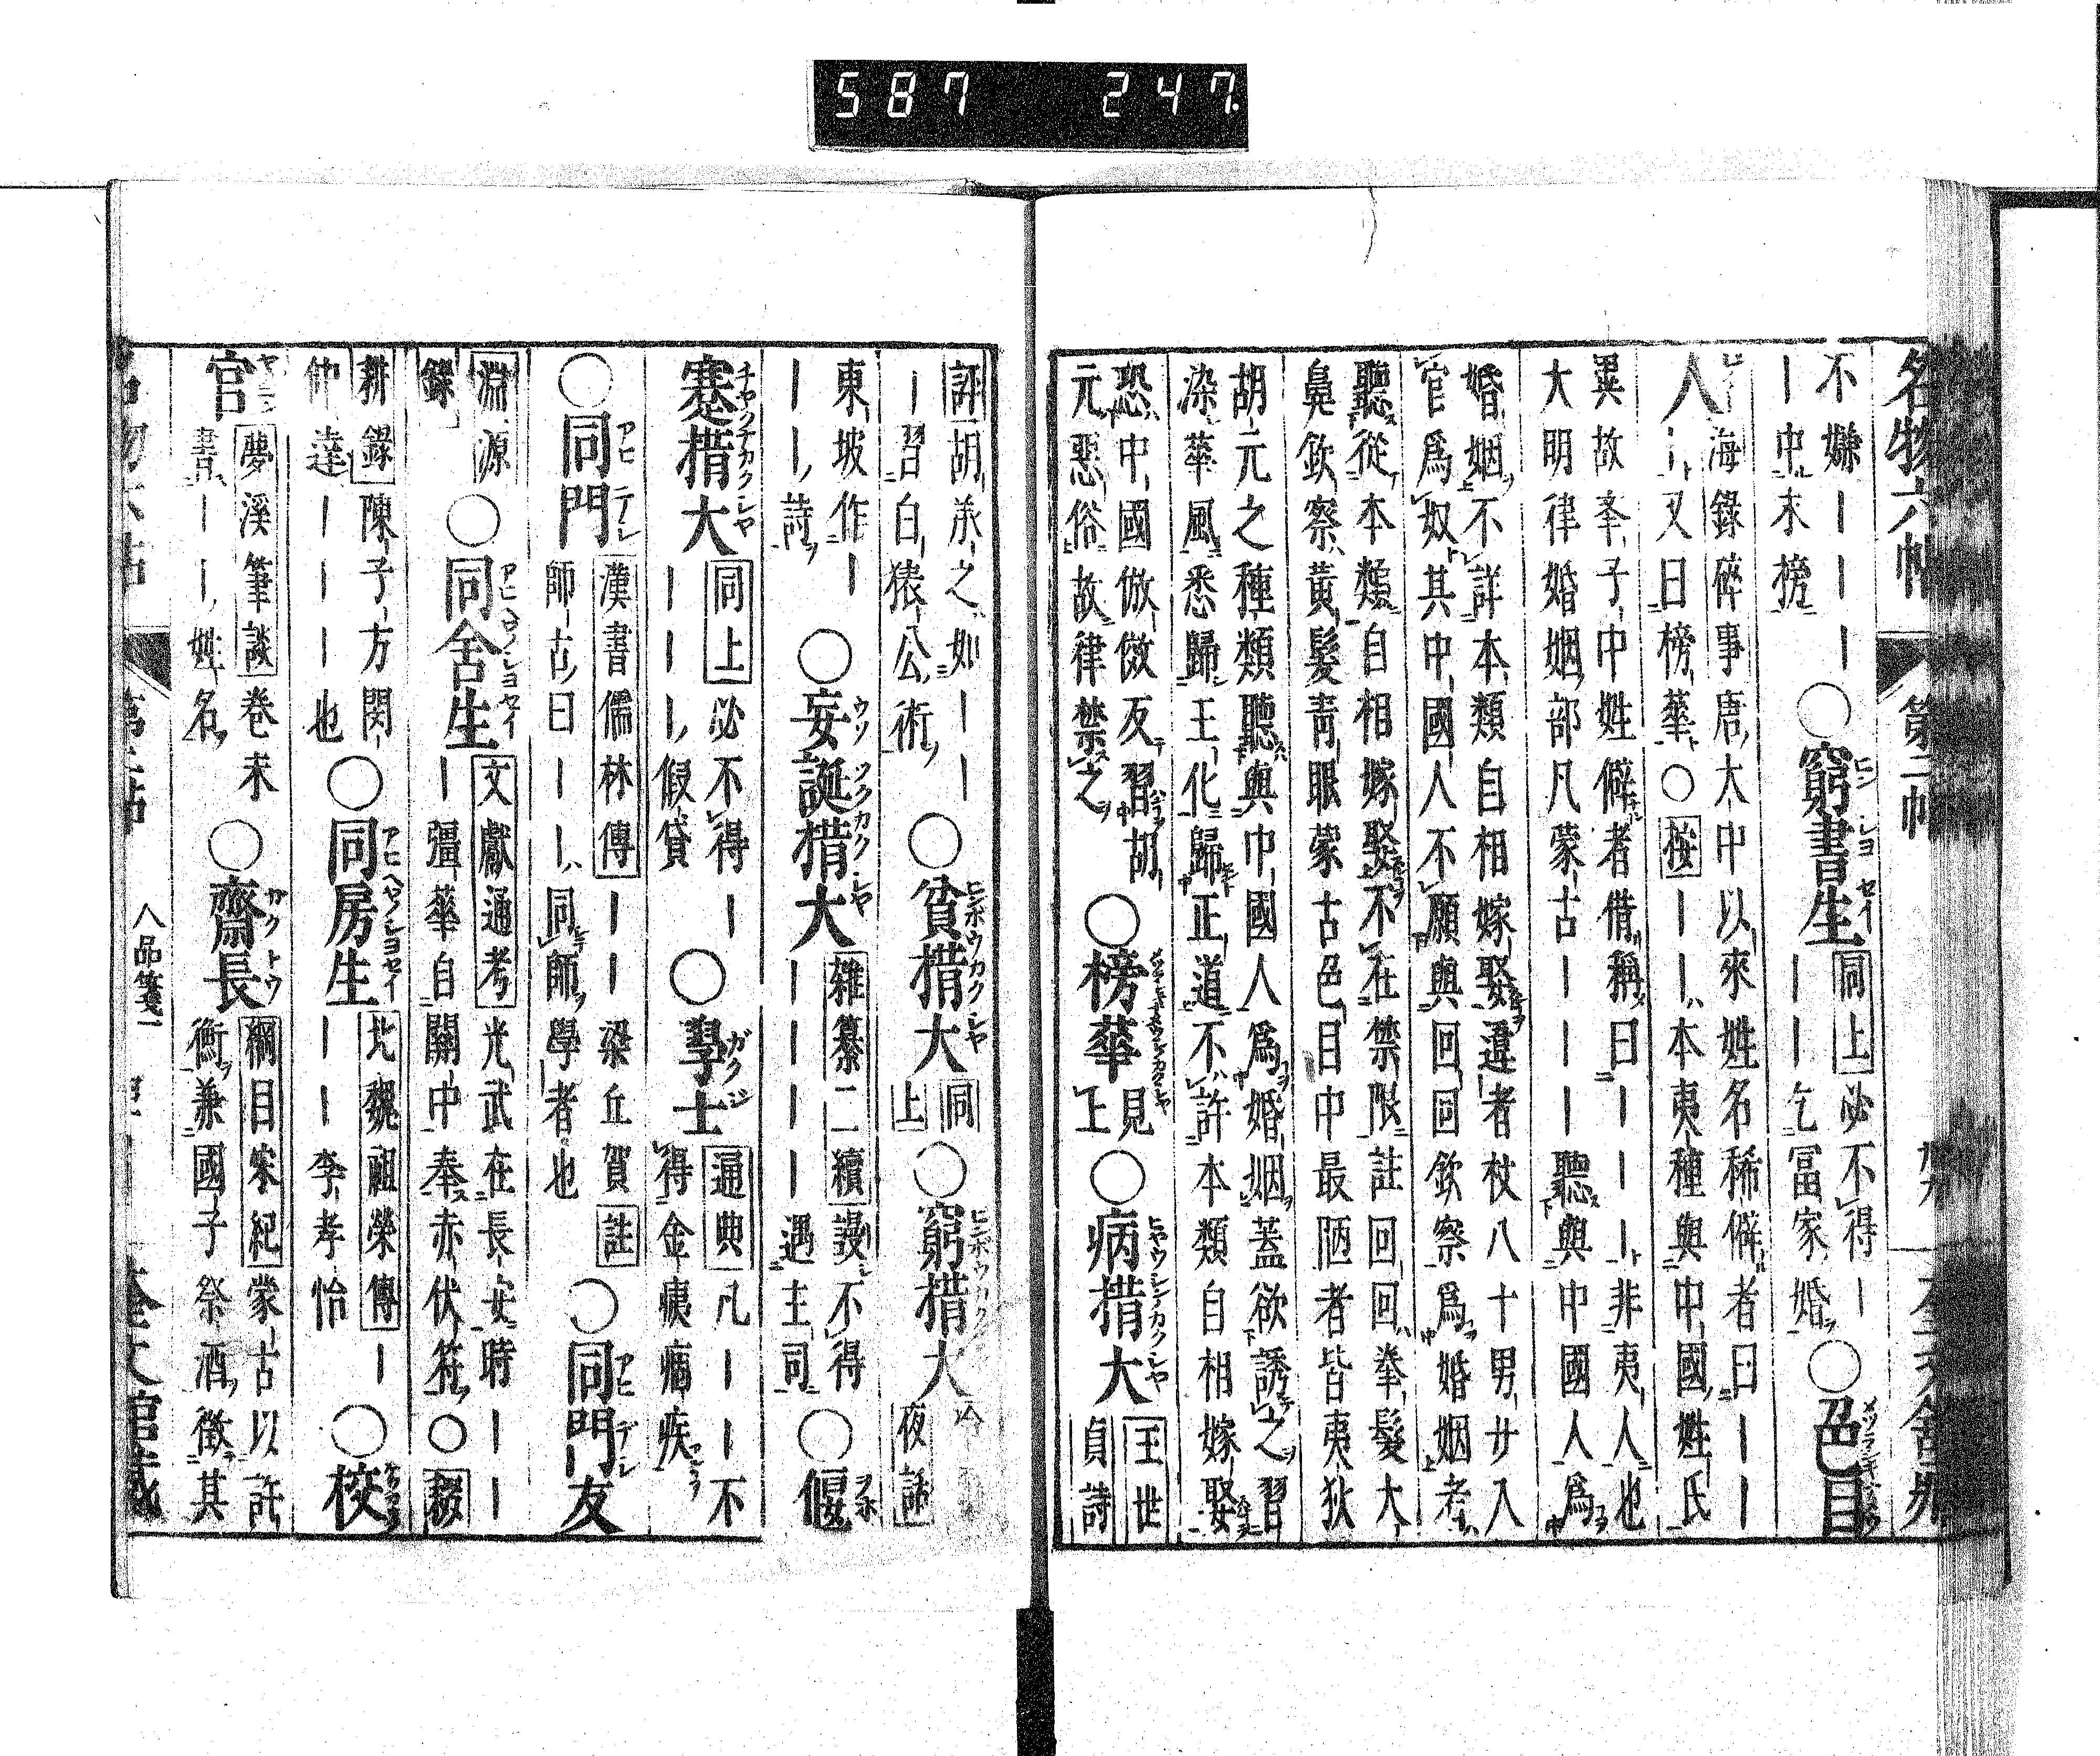 587 247.
名物六帖 第二帖
不嫌｜｜｜｜
｜中末榜
○窮書生 同上 必不得｜
｜｜｜乞冨家婚
○色目
人 海錄碎事唐大中以來姓名稀僻者曰｜｜
｜又曰榜華○按｜｜本夷種與中國姓氏
異故夲子中姓僻者借稱曰｜｜｜非夷人也
大明律婚姻部凡蒙古｜｜｜聽與中國人爲
婚姻不許本類自相嫁娶違者杖八十男女入
官爲奴其中國人不願與回回欽察爲婚姻者
聽從本類自相嫁娶不在禁限註回回拳髮大
鼻欽察黃髮青眼蒙古色目中最陋者皆夷狄
胡元之種類聽與中國人爲婚姻蓋欲誘之習
染華風悉歸王化歸正道不許本類自相嫁娶
恐中國倣傚反習胡
元惡俗故律禁之
○榜華 見上
○病措大 王世貞詩
評胡承之如｜｜｜
｜習白猿公術
○貧措大 同上
○窮措大 冷夜話
東坡作｜｜
｜｜詩
○妄誕措大 雜纂二續 謾不得
｜｜｜｜遇主司
○偃
蹇措大 同上 必不得｜
｜｜｜假貸
○學士 通典 凡｜｜不
得金痍痼疾
○同門 漢書儒林傳 ｜｜梁丘賀 註
師古曰｜｜同師學者也
○同門友
淵源
錄
○同舍生 文獻通考 光武在長安時｜｜
｜彊華自關中奉赤伏符○輟
耕錄 陳子方閔
仲達｜｜｜也
○同房生 北魏祖榮傳 ｜
｜｜李孝怡
○校
官 夢溪筆談 卷末
書｜｜｜姓名
○齋長 綱目宋紀 蒙古以許
衡兼國子祭酒徵其
人品箋一